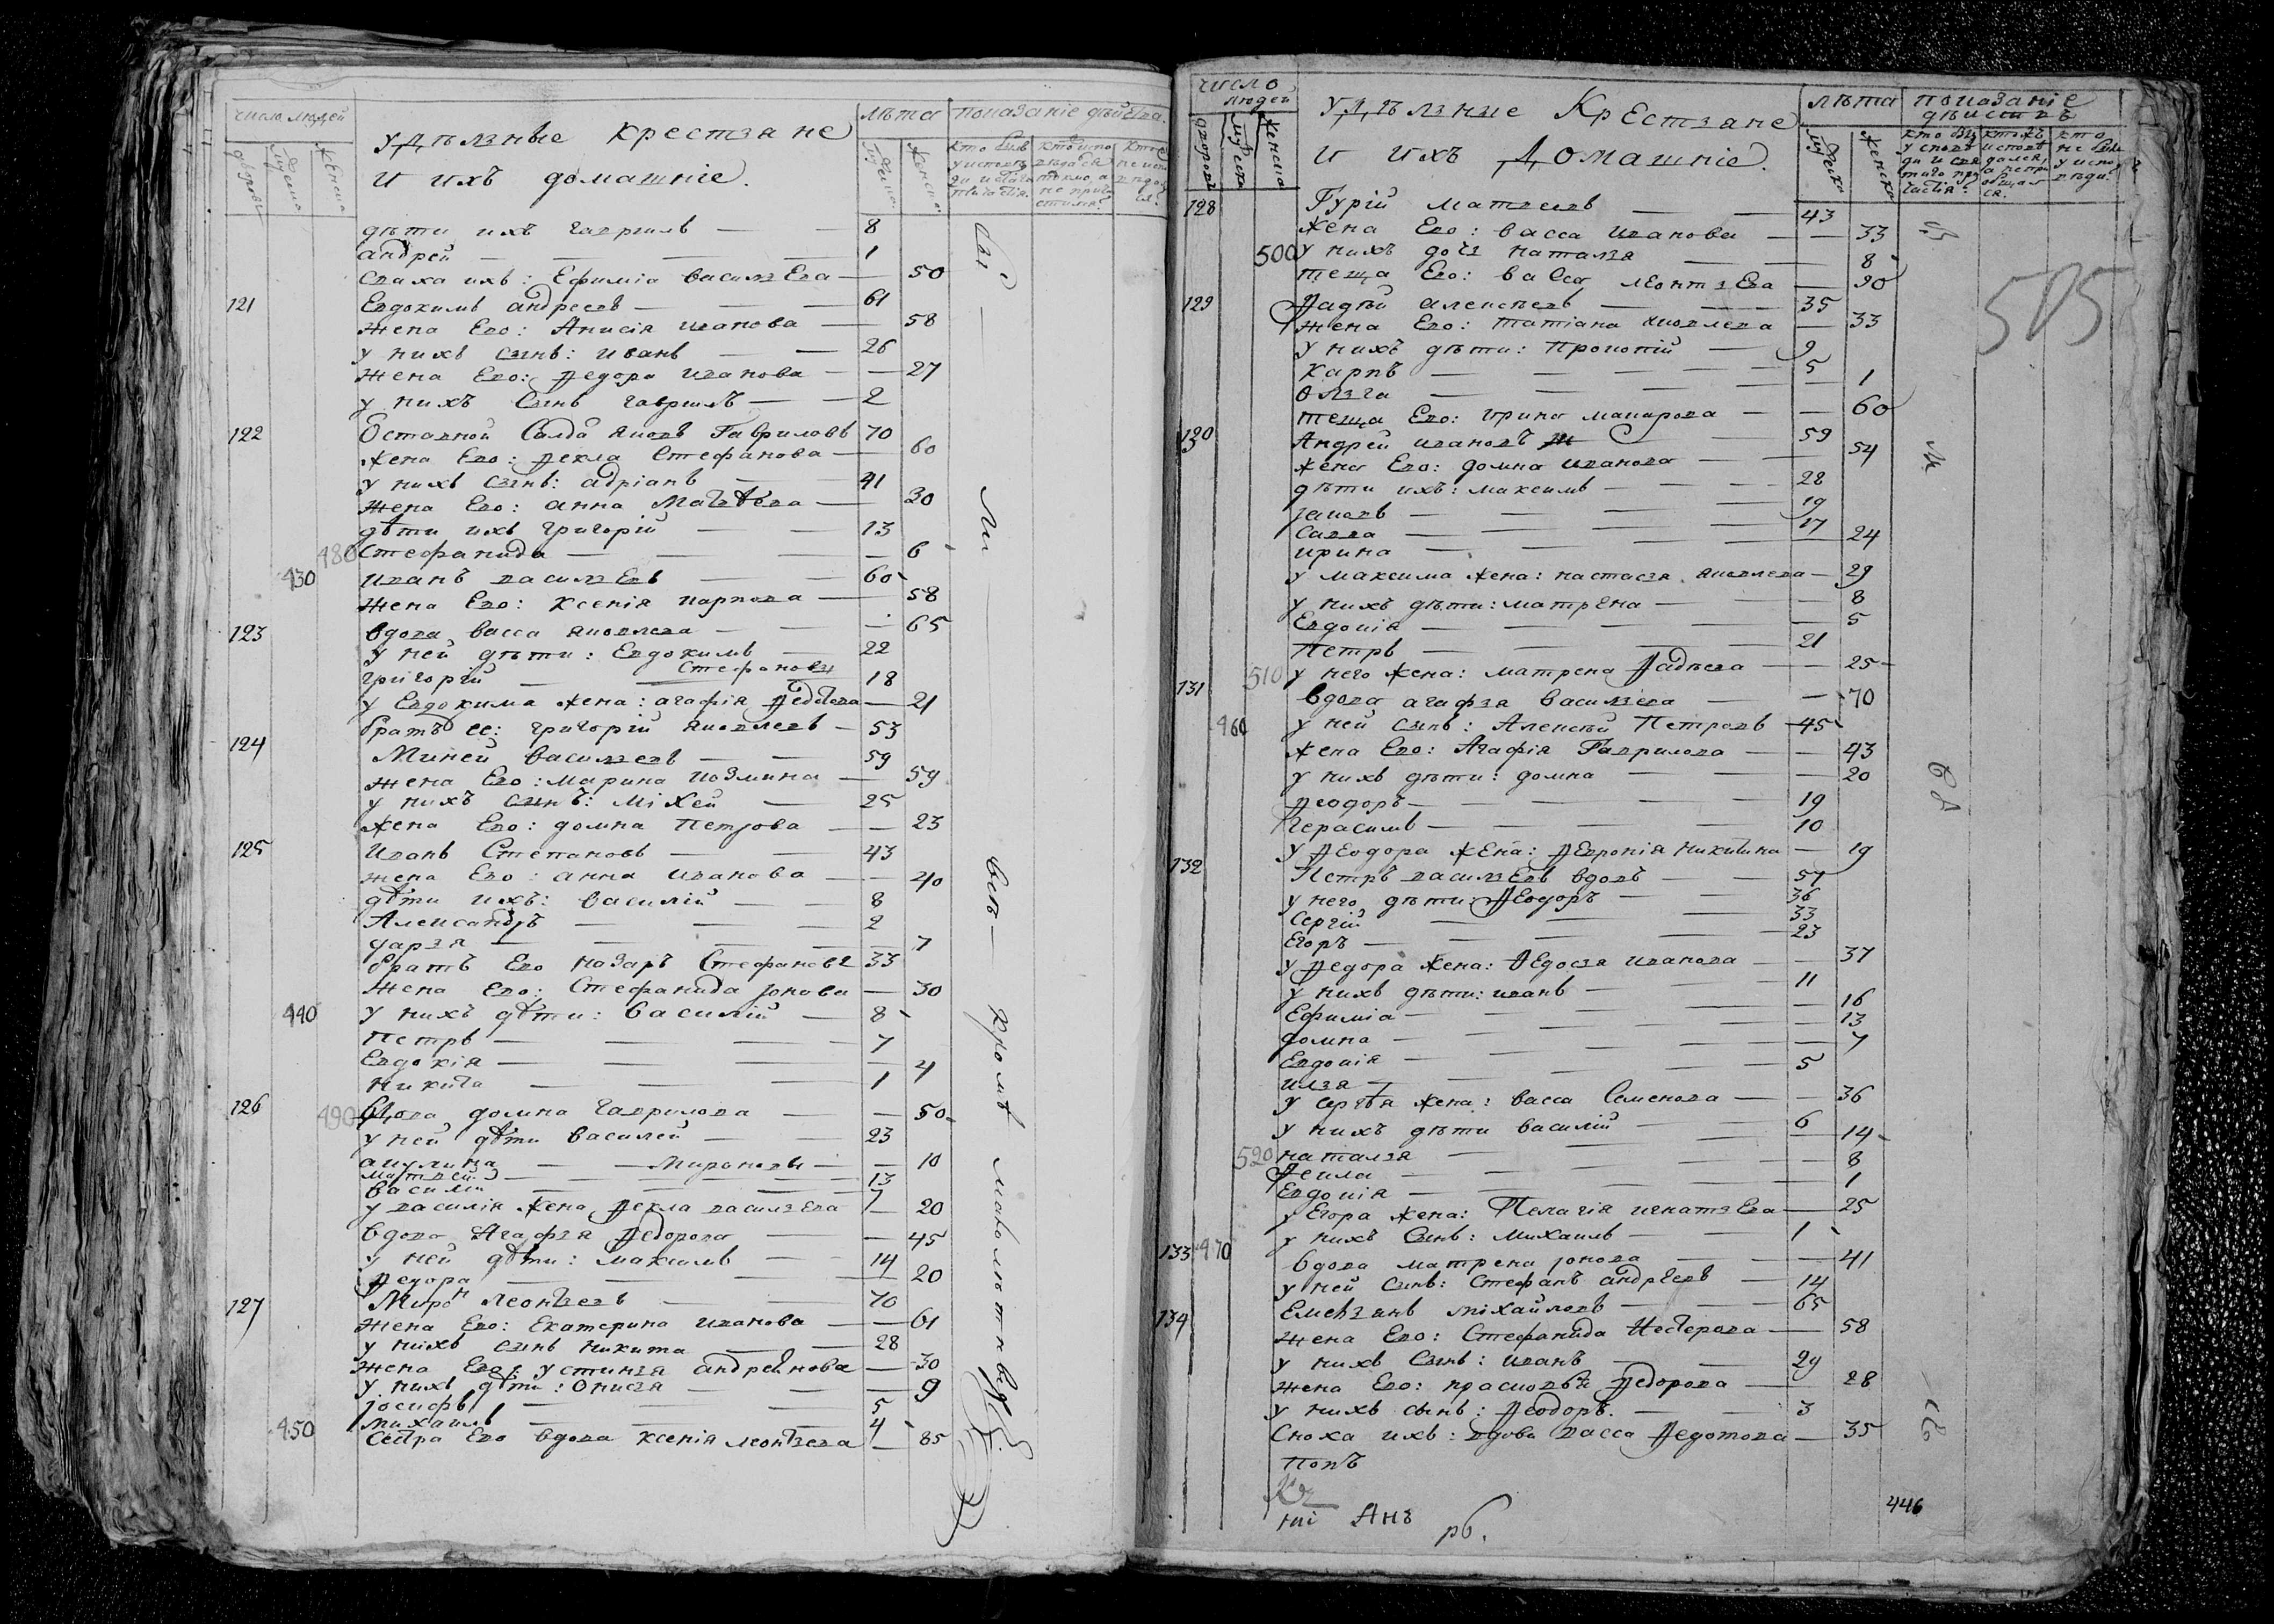 число людей
дворовъ
мужеска
женска
удѣлзные крестзяне
и ихъ домашніе.
лѣта
мужска
женска
показаніе дѣйства.
дѣти ихъ гавріилъ — — 8
андрей — — — — 1
сваха ихъ: Ефиміа василзева — 50
121 Евдокимъ андреевъ — — 61
жена Его: Анисія иванова — 58
у нихъ сынъ: иванъ — — 26
жена Его: Ѳедора иванова — — 27
у нихъ сынъ гавріилъ — — 2
122 Отставной Салда яковъ Гавриловъ 70
жена Его: Ѳекла Стефанова — 60
у нихъ сзинъ: адріанъ — 41
жена Его: анна Матвѣева — 30
дѣти ихъ григорій — — 13
480 Стефанида — — — — 6
430 иванъ василзевъ — — 60
жена Его: ксенія карпова — 58
123 вдова васса яковлева — — 65
у ней дѣти: Евдокимъ — 22
григорій — Стефановы 18
у Евдокима жена: агафія Ѳадѣева — 21
братъ ее: григорій яковлевъ — 53
124 Миней василзевъ — — 59
жена Его: марина козмина — 59
у нихъ сынъ: міхей — 25
жена Его: домна петрова — — 23
125 Иванъ Степановъ — — 43
жена Его: анна иванова — — 40
дѣти ихъ: василій — — 8
Александръ — — — 2
дарзя — — — — 7
братъ Его назаръ Стефановъ 33
жена Его: Стефанида јонова — 30
440 у нихъ дѣти: василій — 8
петръ — — — — 7
Евдокія — — — — 4
никита — — — 1
126 490 вдова домна гаврилова — — 50
у ней дѣти василей — — 23
акулина — — Мироновы — — 10
матвей — — — 13
василій — — — 7
у василія жена Ѳекла василзева — 20
вдова Агафзя Ѳедорова — — 45
у ней дѣти: максимъ — — 14
Ѳедора — — — — 20
127 Миронъ леонтзевъ — — 70
жена Его: Екатерина иванова — — 61
у нихъ сынъ никита — — 28
жена Его: устинзя андреянова — 30
у нихъ дѣти: Онисзя — — — 9
јосифъ — — — 5
михаилъ — — — 4
450 Сестра Его вдова ксенія леонтзева — 85
бы — ли — всѣ — кромѣ малолѣтнвхъ
число людей
дворовъ
мужеска
женска
удѣлзные Крестзяне
и ихъ домашніе.
лѣта
мужеска
женска
показаніе дѣиства
128 Гурій матвеевъ — — 43
жена Его: васса иванова — — 33
500 у нихъ дочз наталзя — — 8
теща Его: васса леонтзева — 90
129 Ѳадѣй алексѣевъ — — 35
жена Его: татіана яковлева — 33
у нихъ дѣти: прокопій — 9
карпъ — — — — 5
олзга — — — — 1
теща Его: ирина макарова — — 60
130 Андрей ивановъ — 59
жена Его: домна иванова — — 54
дѣти ихъ: максимъ — — 28
јаковъ — — — — 19
савва — — — — 17
ирина — — — — 24
у максима жена: настасзя яковлева — 29
у нихъ дѣти: матрена — — 8
Евдокія — — — — 5
петръ — — — — 21
510 у него жена: матрена Ѳадѣева — — 25
131 вдова агафзя василзева — — 70
460 у ней сзинъ: Алексѣй Петровъ 45
жена Его: Агафія Гаврилова — — 43
у нихъ дѣти: домна — — 20
Ѳеодоръ — — — — 19
герасимъ — — — 10
у Ѳеодора жена: Ѳевронія никитина — 19
132 Петръ василзевъ вдовъ — — 57
у него дѣти: Ѳеодоръ — — 36
Сергій — — — 33
Егоръ — — — — 23
у Ѳедора жена: Ѳедосзя иванова — — 37
у нихъ дѣти: иванъ — — 11
Ефиміа — — — — 16
домна — — — — 13
Евдокія — — — — 7
илзя — — — — 5
у сергѣя жена: васса Семенова — — 36
у нихъ дѣти василій — — 6
520 наталзя — — — — 14
Ѳекла — — — — 8
Евдокія — — — — 1
у Егора жена: Пелагія игнатзева — 25
у нихъ Сынъ: михаилъ — — 1
133 470 вдова матрена јонова — — 41
у ней сынъ: стефанъ андреевъ — 14
134 Емелзянъ міхайловъ — — 65
жена Его: Стефанида Нестерова — 58
у нихъ Сынъ: иванъ — — 29
жена Его: прасковѣя Ѳедорова — 28
у нихъ сынъ: Ѳеодоръ. — — 3
Сноха ихъ: вдова васса Ѳедотова — 35
попъ
Анз
рб.
446
515